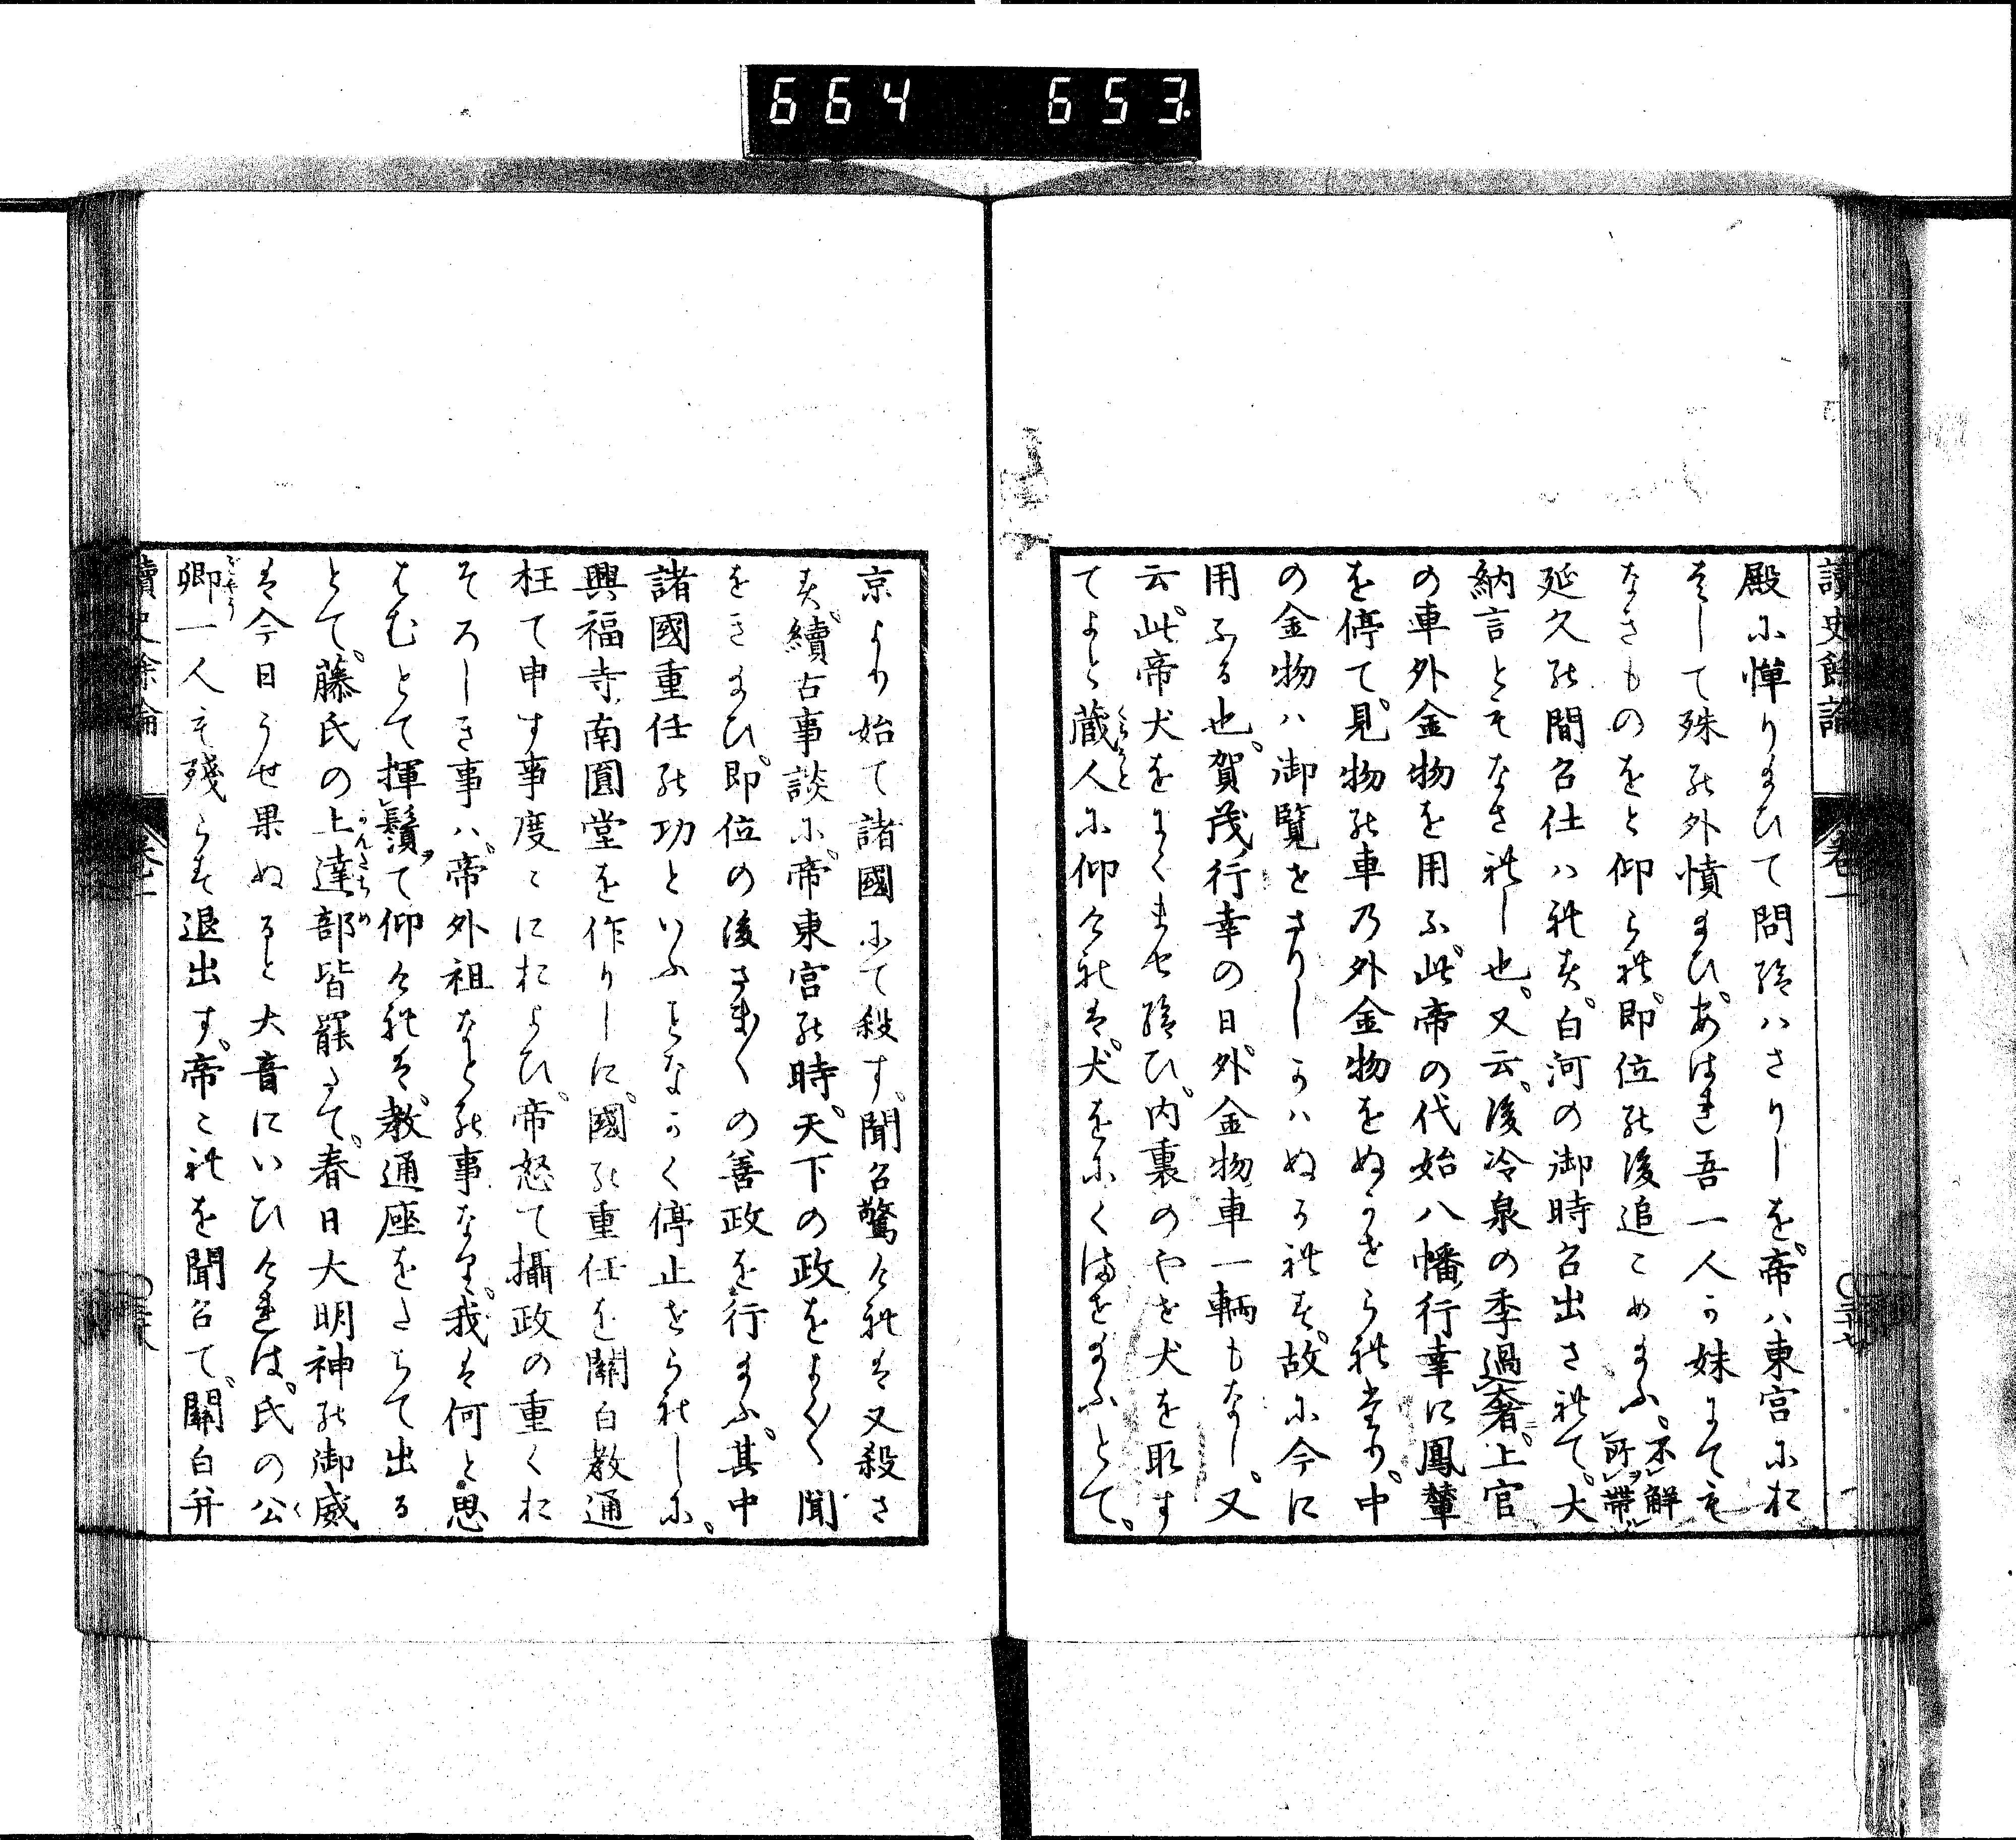 664 653
讀史餘論 卷一
殿に憚り玉ひて問給はさりしを帝ハ東宮にお
はして殊の外憤玉ひあはれ吾一人か妹にても
なきものをと仰られ即位の後追こめ玉ふ不解所帯
延久の間召仕ハれす白河の御時召出されて大
納言とそなされし也又云後冷泉の季過奢上官
の車外金物を用ふ此帝の代始八幡行幸に鳳輦
を停て見物の車乃外金物をぬかせられ
の金物ハ御覽せさりしかハぬかれす故に今に
用ふる也賀茂行幸の日外金物車一輌もなし又
云此帝犬をにくませ給ひ内裏のやせ犬を取す
てよと蔵人に仰けれは犬をにくませ玉ふとて
京より始て諸國にて殺す聞召驚けれは又殺さ
す續古事談に帝東宮の時天下の政をよく〱聞
をき玉ひ即位の後さま〱の善政を行玉ふ其中
諸國重任の功といふことなかく停止せられしに
興福寺南圓堂を作りしに國の重任を關白教通
枉て申す事度々におよひ帝怒て攝政の重くお
そろしき事ハ帝外祖なとの事なり我は何と思
はむとて揮鬚て仰けれは教通座をたちて出る
とて藤氏の上達部皆罷たて春日大明神の御威
は今日うせ果ぬると大音にいひけれは氏の公
卿一人も殘らす退出す帝これを聞召て關白并